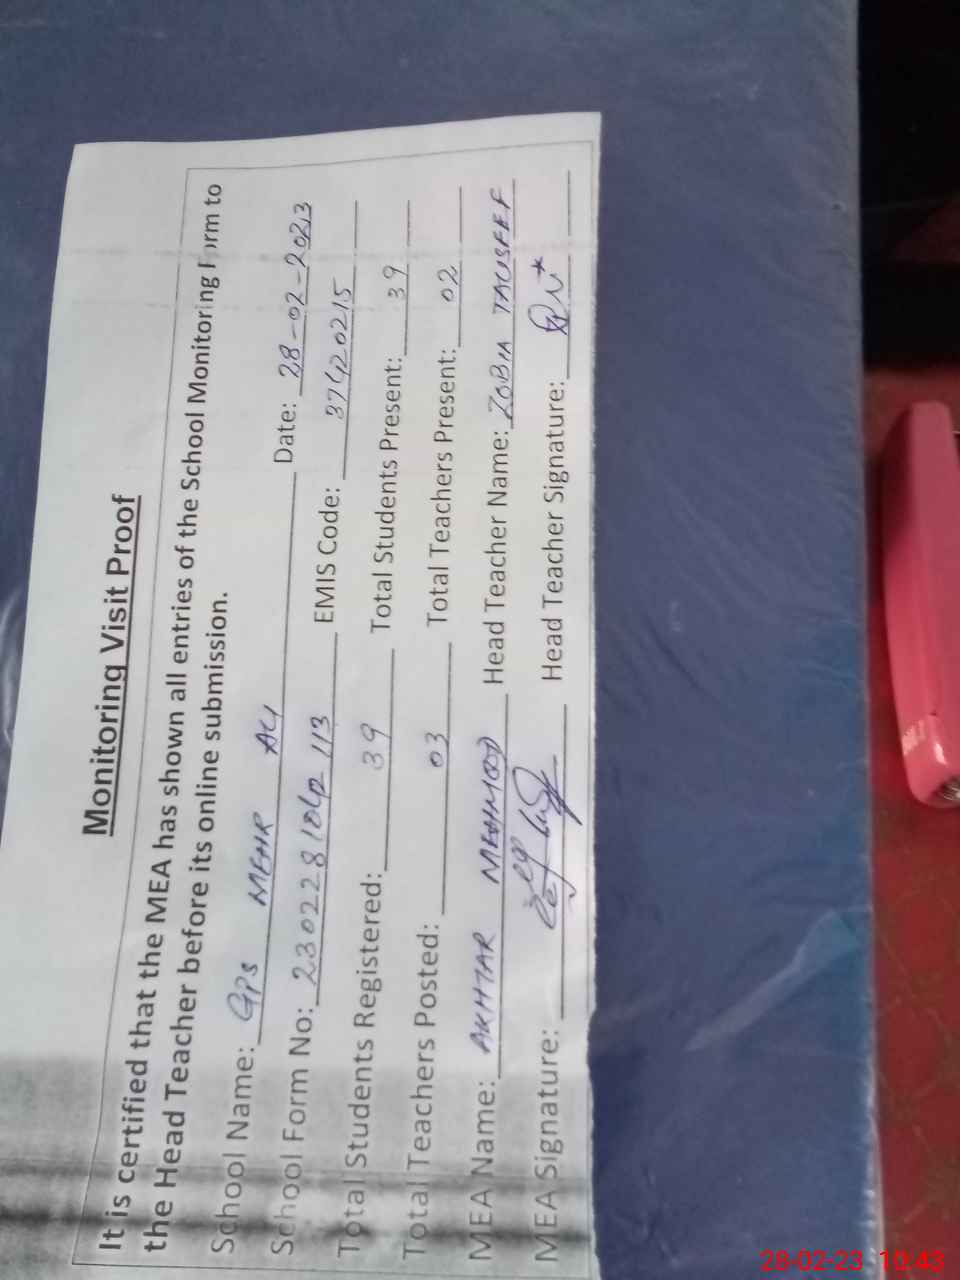 Monitoring Visit Proof
It is certified that the MEA has shown all entries of the School Monitoring Form to
the Head Teacher before its online submission.
School Name: GPS MEHR ALI Date: 28-02-2023
School Form No: EMIS Code: 37420215
Total Students Registered: 39 Total Students Present: 39
Total Teachers Posted: 03 Total Teachers Present: 02
MEA Name: AKHTAR MEHMOOD Head Teacher Name: ZOBIA TAUSEEF
MEA Signature: Head Teacher Signature:
28-02-23 10:43